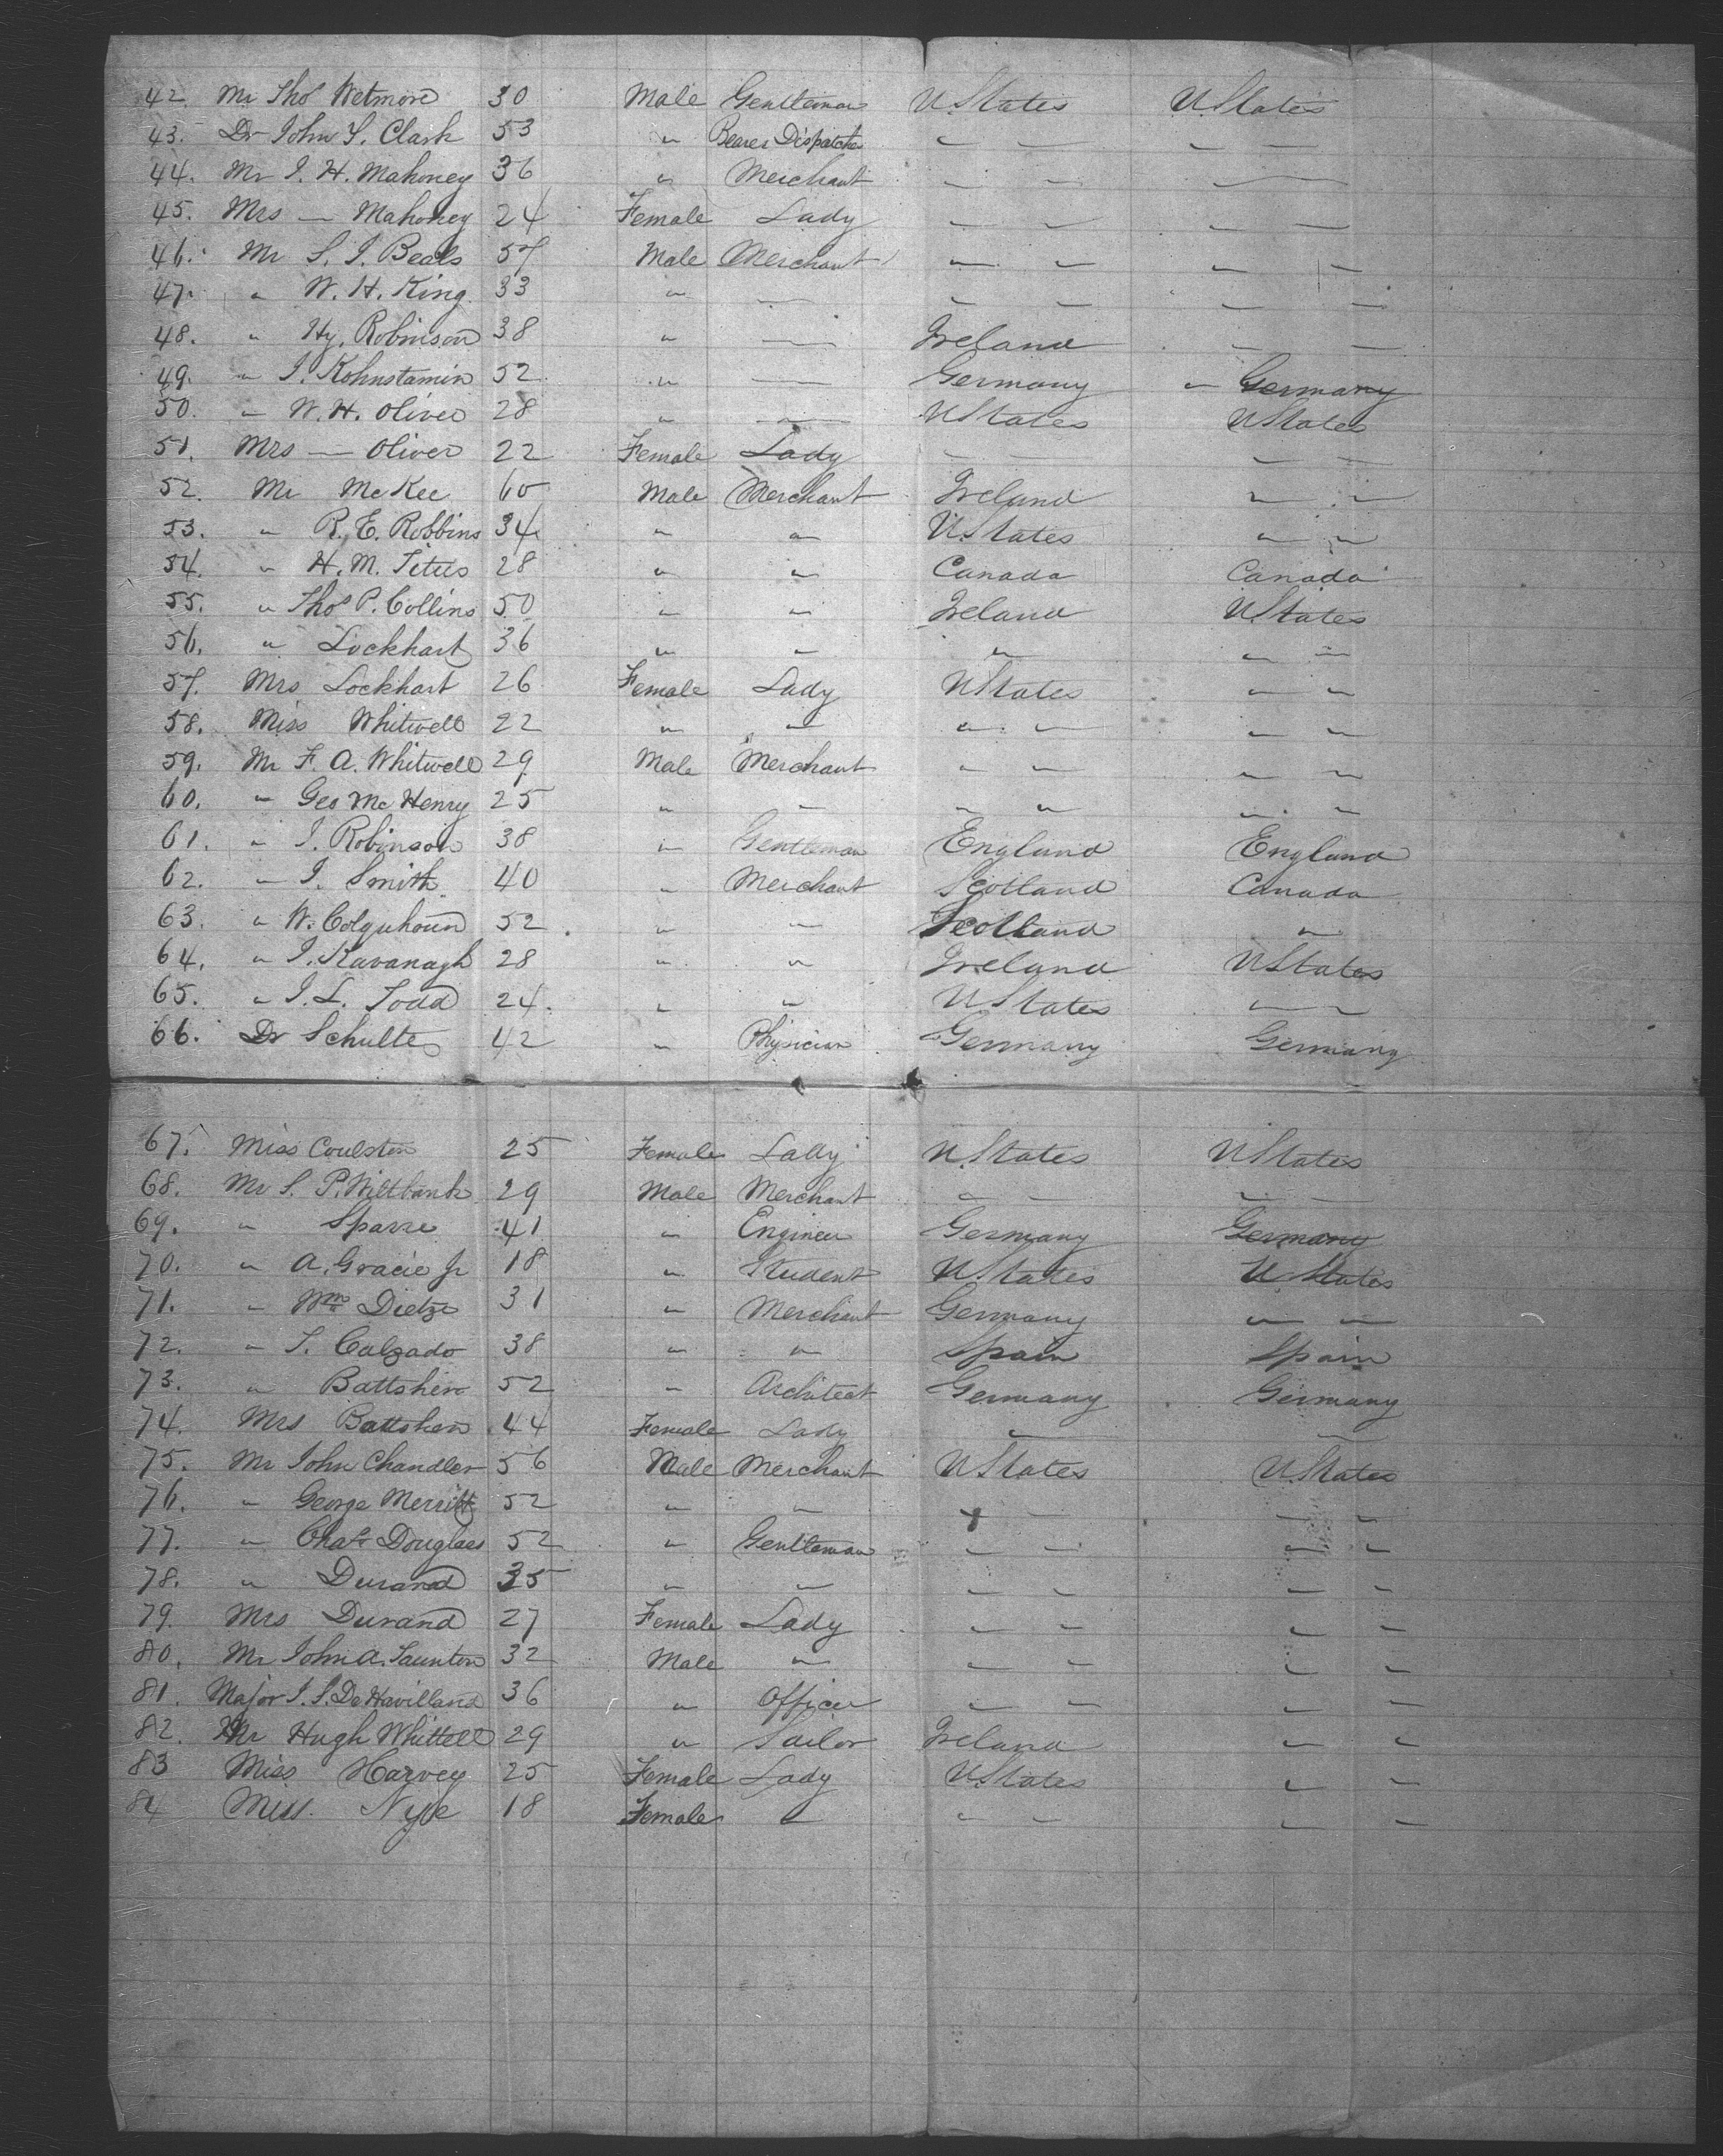 42. Mr Thos Wetmore 30 Male Gentleman U. States U. States
43. Dr John S. Clark 53 " Bearer Dispatches — — — —
44. Mr J. H. Mahoney 36 " Merchant — — — —
45. Mrs — Mahoney 24 Female Lady — — — —
46. Mr S. J. Beals 57 Male Merchant — — — —
47. " W. H. King 33 " — — — — —
48. " Hy. Robinson 38 " — Ireland — —
49. " J. Kohnstamin 52 " — Germany " Germany
50. " W. H. Oliver 28 " — U States U States
51. Mrs — Oliver 22 Female Lady — — — —
52. Mr McKee 60 Male Merchant Ireland " "
53. " R. E. Robbins 34 " " U. States " "
54. " H. M. Titus 28 " " Canada Canada
55. " Thos P. Collins 50 " " Ireland U. States
56. " Lockhart 36 " " " " "
57. Mrs Lockhart 26 Female Lady U States " "
58. Miss Whitwell 22 " " " " " "
59. Mr F. A. Whitwell 29 Male Merchant " " " "
60. " Geo McHenry 25 " " " " " "
61. " J. Robinson 38 " Gentleman England England
62. " J. Smith 40 " Merchant Scotland Canada
63. " W. Colquhoun 52 " " Scotland "
64. " J. Kavanagh 28 " " Ireland U States
65. " J. L. Todd 24 " " U. States " "
66. Dr Schulte 42 " Physician Germany Germany
67. Miss Coulston 25 Female Lady U. States U States
68. Mr S. P. Wiltbank 29 Male Merchant — — — —
69. " Sparre 41 " Engineer Germany Germany
70. " A. Gracie Jr 18 " Student U. States U. States
71. " Wm Dietze 31 " Merchant Germany " "
72. " T. Calzado 38 " " Spain Spain
73. " Battsher 52 " Architect Germany Germany
74. Mrs Battsher 44 Female Lady " "
75. Mr John Chandler 56 Male Merchant U States U. States
76. " George Merritt 52 " " " " " "
77. " Chas Douglass 52 " Gentleman " " " "
78. " Durand 35 " " " " " "
79. Mrs Durand 27 Female Lady " " " "
80. Mr John A. Taunton 32 Male " " " " "
81. Major J. S. De Havilland 36 " Officer " " " "
82. Mr Hugh Whittell 29 " Sailor Ireland " "
83 Miss Harvey 25 Female Lady U. States " "
84 Miss. Nye 18 Female " " " " "